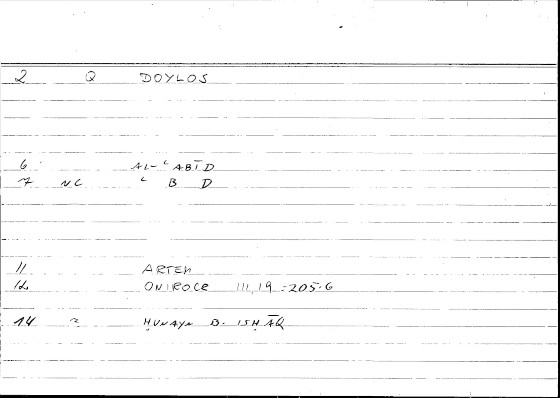 2 Q DOYLOS
6 AL-ʿABĪD
7 NC ʿ B D
11 ARTEM
12 ONIROCR III,19 = 205.6
14 ~ ḤUNAYN B. ISḤĀQ